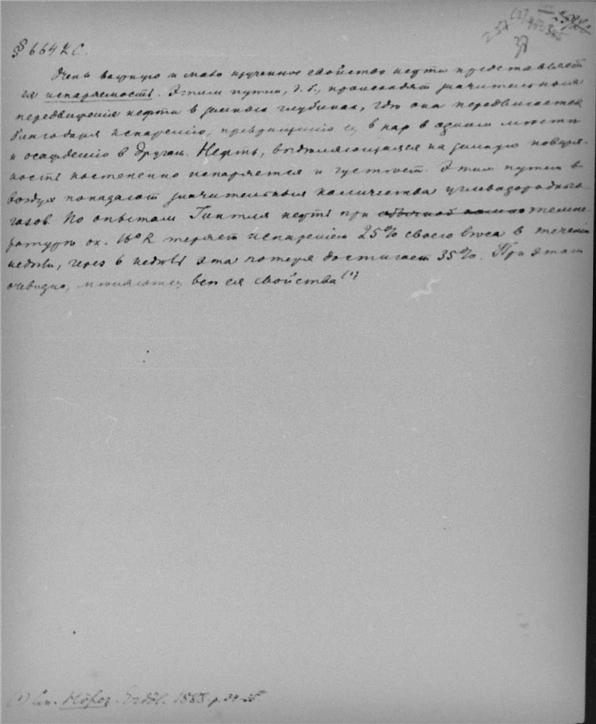 §§ 664 К.С.
Очень важную и мало изученное свойство нефти представляет
ея испаряемость. Этим путем, д. б., происходят значительныя
передвижения нефти в земных глубинах, где она передвигается
благодаря испарению, превращению в пар в одном месте
и осаждению в другом. Нефть, выделяющаяся на земную поверх-
ность постепенно испаряется и густеет. Этим путем в
воздух попадают значительныя количества углеводородных
газов. По опытам Гинтля нефть при темпе-
ратуре ок. 16° R теряет испарением 25% своего веса в течении
недели, через 6 недель эта потеря достигает 35%. При этом
очевидно, меняются все ея свойства (1)
(1) См. Höfer. Erdöl. 1888. p.